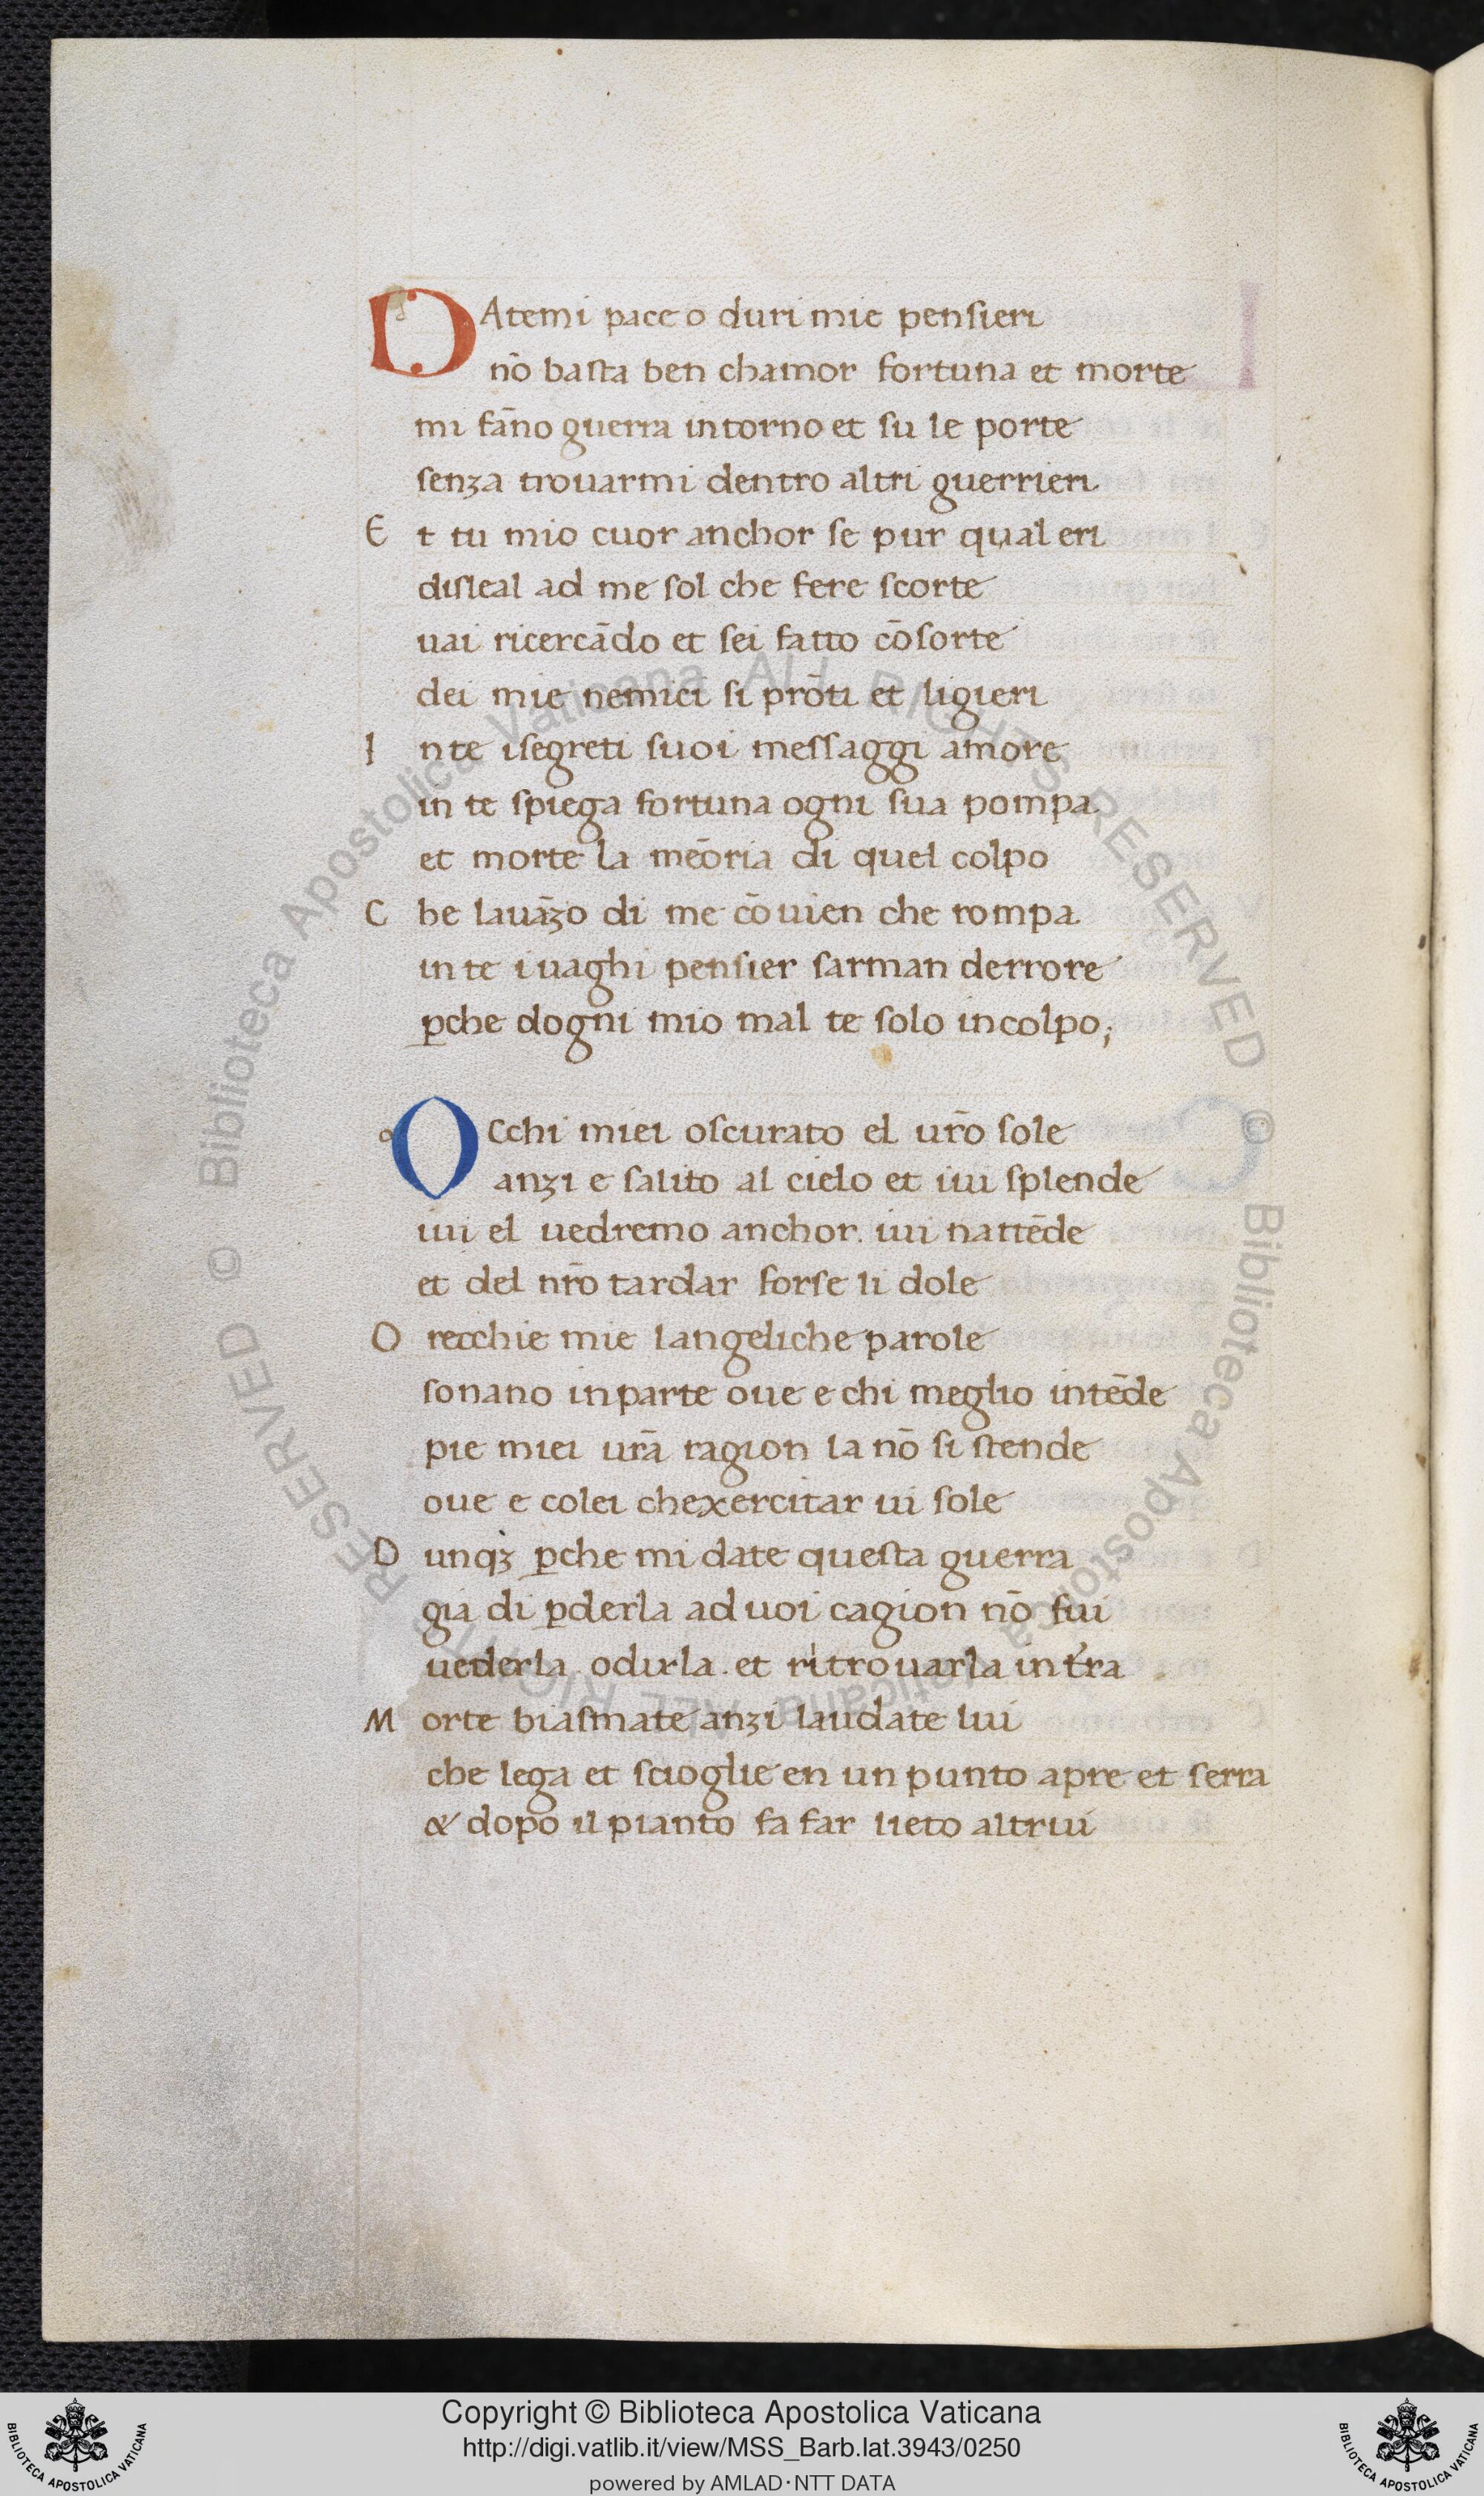 DAtemi pace o duri mie pensieri
nō basta ben chamor fortuna et morte
mi fāno guerra intorno et su le porte
senza trouarmi dentro altri guerrieri
Et tu mio cuor anchor se pur qual eri
disleal ad me sol che fere scorte
uai ricercādo et sei fatto cōsorte
dei mie nemici si prōti et ligieri
In te isegreti suoi messaggi amore
in te spiega fortuna ogni sua pompa
et morte la mēoria di quel colpo
Che lauāzo di me cōuien che rompa
in te i uaghi pensier sarman derrore
ꝑche dogni mio mal te solo incolpo;
OCchi miei oscurato el ur̄o sole
anzi e salito al cielo et iui splende
iui el uedremo anchor. iui nattēde
et del nr̄o tardar forse li dole
Orecchie mie langeliche parole
sonano in parte oue e chi meglio intēde
pie miei urā ragion la nō si stende
oue e colei chexercitar ui sole
Dunqꝫ ꝑche mi date questa guerra
gia di ꝑderla ad uoi cagion nō fui
uederla. odirla. et ritrouarla in t̄ra
Morte biasmate anzi laudate lui
che lega et scioglie en un punto apre et serra
& dopo il pianto fa far lieto altrui
Biblioteca Apostolica Vaticana ALL RIGHTS RESERVED ©
Biblioteca Apostolica Vaticana ALL RIGHTS RESERVED ©
Copyright © Biblioteca Apostolica Vaticana
http://digi.vatlib.it/view/MSS_Barb.lat.3943/0250
powered by AMLAD·NTT DATA
BIBLIOTECA APOSTOLICA VATICANA
BIBLIOTECA APOSTOLICA VATICANA